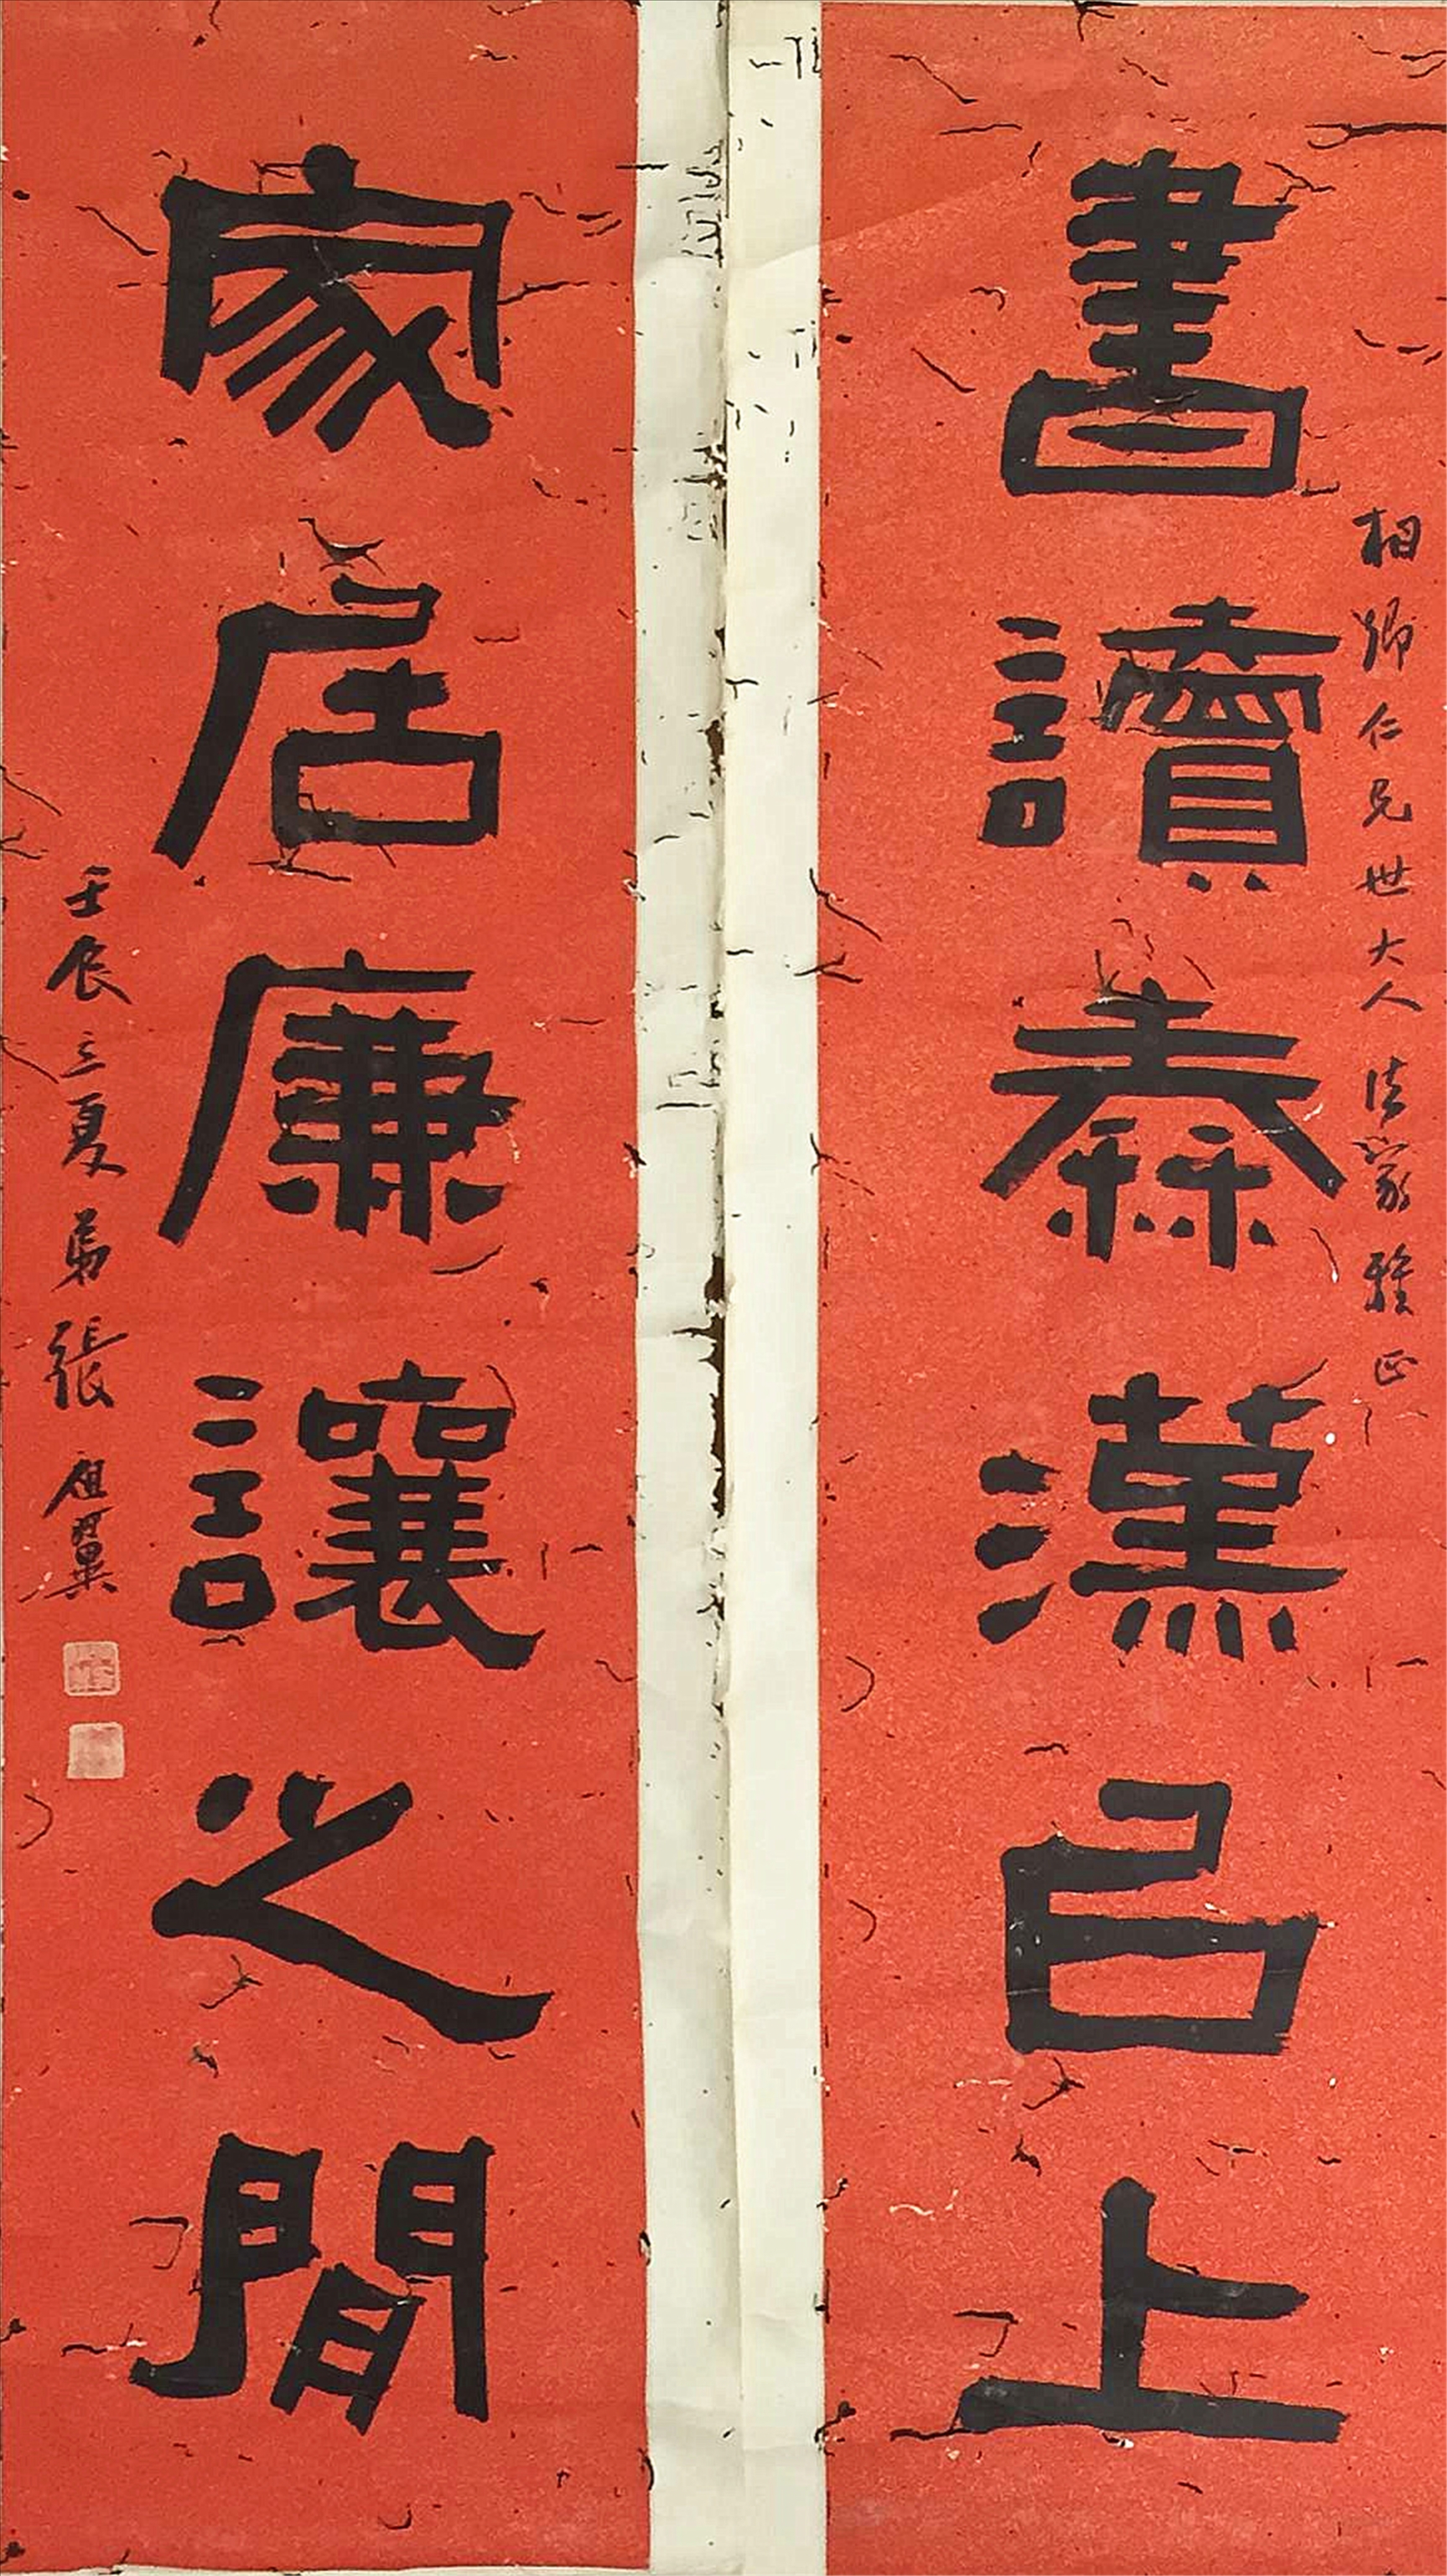 書讀秦漢㠯上
家居廉讓之間
相卿仁兄世大人法家雅正
壬辰三夏弟張祖翼